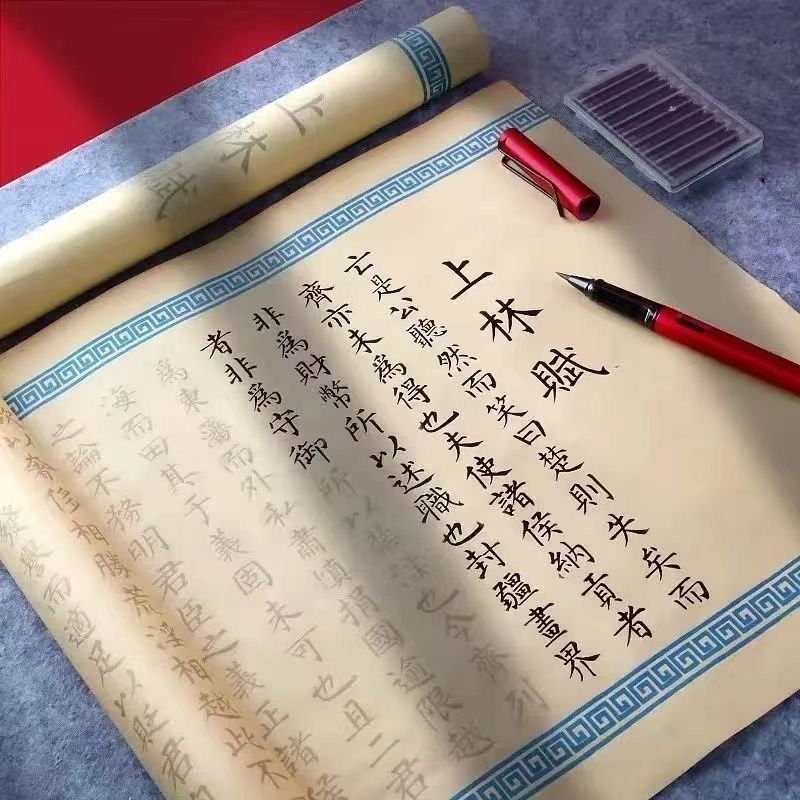 上林賦
上林賦
亡是公聽然而笑曰楚則失矣而
齊亦未為得也夫使諸侯納貢者
非為財幣所以述職也封疆畫界
者非為守御所以禁淫也今齊列
為東藩而外私肅慎捐國逾限越
海而田其于義固未可也且二君
之論不務明君臣之義正諸侯
奢侈相勝荒淫相越此不
發譽而適足以貶君